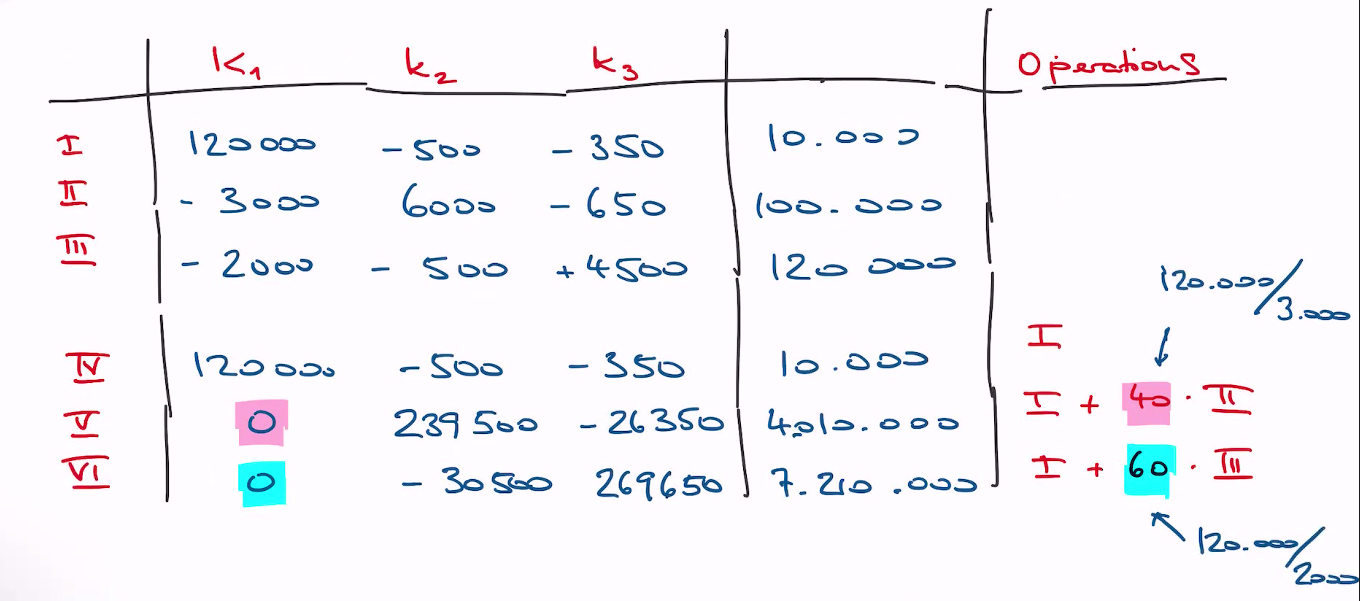 K₁ k₂ k₃ Operations
I 120000 -500 -350 10.000
II -3000 6000 -650 100.000
III -2000 -500 +4500 120 000
120.000/3.000
I
IV 120000 -500 -350 10.000
V 0 239500 -26350 4.010.000 I + 40 · II
VI 0 -30500 269650 7.210.000 I + 60 · III
120.000/2000